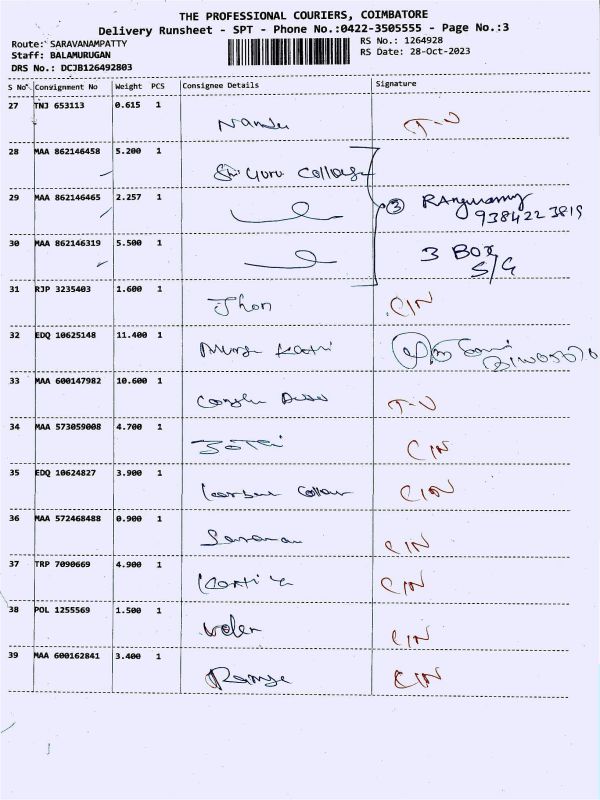 THE PROFESSIONAL COURIERS, COIMBATORE
Delivery Runsheet - SPT - Phone No.:0422-3505555 - Page No.:3
Route: SARAVANAMPATTY RS No.: 1264928
Staff: BALAMURUGAN RS Date: 28-Oct-2023
DRS No.: DCJB126492803
S No Consignment No Weight PCS Consignee Details Signature
27 TNJ 653113 0.615 1
28 MAA 862146458 5.200 1 Sri Guru College
29 MAA 862146465 2.257 1 3 RAnguvamy
9384223819
30 MAA 862146319 5.500 1 3 BOX
S/G
31 RJP 3235403 1.600 1 Jhon CIN
32 EDQ 10625148 11.400 1
33 MAA 600147982 10.600 1
34 MAA 573059008 4.700 1 CIN
35 EDQ 10624827 3.900 1 CIN
36 MAA 572468488 0.900 1 CIN
37 TRP 7090669 4.900 1 CIN
38 POL 1255569 1.500 1 CIN
39 MAA 600162841 3.400 1 CIN